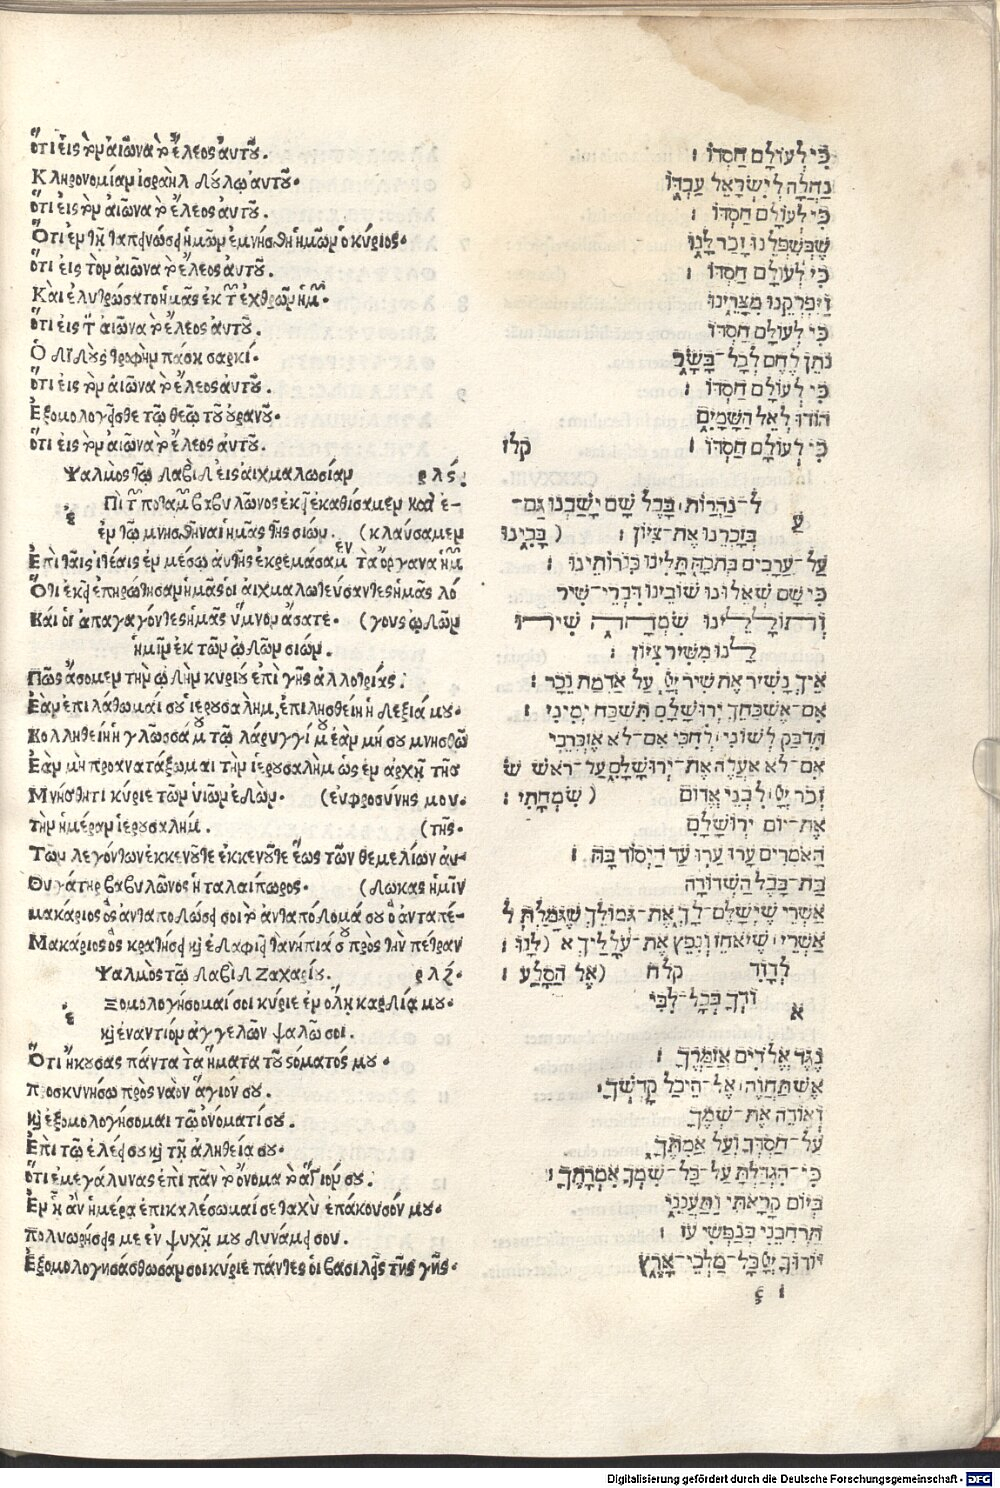 ὅτι εἰς τὸν αἰῶνα τὸ ἔλεος αὐτοῦ.
Κληρονομίαν ἰσραὴλ δούλῳ αὐτοῦ.
ὅτι εἰς τὸν αἰῶνα τὸ ἔλεος αὐτοῦ.
Ὅτι ἐν τῇ ταπεινώσει ἡμῶν ἐμνήσθη ἡμῶν ὁ κύριος.
ὅτι εἰς τὸν αἰῶνα τὸ ἔλεος αὐτοῦ.
Καὶ ἐλυτρώσατο ἡμᾶς ἐκ τῶν ἐχθρῶν ἡμῶν.
ὅτι εἰς τὸν αἰῶνα τὸ ἔλεος αὐτοῦ.
Ὁ διδοὺς τροφὴν πάσῃ σαρκί.
ὅτι εἰς τὸν αἰῶνα τὸ ἔλεος αὐτοῦ.
Ἐξομολογεῖσθε τῷ θεῷ τοῦ οὐρανοῦ.
ὅτι εἰς τὸν αἰῶνα τὸ ἔλεος αὐτοῦ.
Ψαλμὸς τῷ δαβὶδ εἰς αἰχμαλωσίαν ρλς.
Πὶ τῶν ποταμῶν βαβυλῶνος ἐκεῖ ἐκαθίσαμεν καὶ ἐ-
ἐν τῷ μνησθῆναι ἡμᾶς τῆς σιών. (κλαύσαμεν
Ἐπὶ ταῖς ἰτέαις ἐν μέσῳ αὐτῆς ἐκρεμάσαμεν τὰ ὄργανα ἡμῶν
Ὅτι ἐκεῖ ἐπηρώτησαν ἡμᾶς οἱ αἰχμαλωτεύσαντες ἡμᾶς λό
Καὶ οἱ ἀπαγαγόντες ἡμᾶς ὕμνον ᾄσατε. (γους ᾠδῶν
ἡμῖν ἐκ τῶν ᾠδῶν σιών.
Πῶς ᾄσομεν τὴν ᾠδὴν κυρίου ἐπὶ γῆς ἀλλοτρίας.
Ἐὰν ἐπιλάθωμαί σου ἱερουσαλήμ, ἐπιλησθείη ἡ δεξιά μου.
Κολληθείη ἡ γλῶσσά μου τῷ λάρυγγί μου ἐὰν μή σου μνησθῶ
Ἐὰν μὴ προανατάξωμαι τὴν ἱερουσαλὴμ ὡς ἐν ἀρχῇ τῆς
Μνήσθητι κύριε τῶν υἱῶν ἐδώμ. (εὐφροσύνης μου.
τὴν ἡμέραν ἱερουσαλήμ. (τῆς.
Τῶν λεγόντων ἐκκενοῦτε ἐκκενοῦτε ἕως τῶν θεμελίων αὐ-
Θυγάτηρ βαβυλῶνος ἡ ταλαίπωρος. (δωκας ἡμῖν
μακάριος ὃς ἀνταποδώσει σοι τὸ ἀνταπόδομά σου ὃ ἀνταπέ-
Μακάριος ὃς κρατήσει καὶ ἐδαφιεῖ τὰ νήπιά σου πρὸς τὴν πέτραν
Ψαλμὸς τῷ δαβὶδ Ζαχαρίου. ρλζ.
Ξομολογήσομαί σοι κύριε ἐν ὅλῃ καρδίᾳ μου.
καὶ ἐναντίον ἀγγέλων ψαλῶ σοι.
Ὅτι ἤκουσας πάντα τὰ ῥήματα τοῦ στόματός μου.
προσκυνήσω πρὸς ναὸν ἅγιόν σου.
καὶ ἐξομολογήσομαι τῷ ὀνόματί σου.
Ἐπὶ τῷ ἐλέει σου καὶ τῇ ἀληθείᾳ σου.
ὅτι ἐμεγάλυνας ἐπὶ πᾶν τὸ ὄνομα τὸ ἅγιόν σου.
Ἐν ᾗ ἂν ἡμέρᾳ ἐπικαλέσωμαί σε ταχὺ ἐπάκουσόν μου.
πολυωρήσεις με ἐν ψυχῇ μου δυνάμει σου.
Ἐξομολογησάσθωσάν σοι κύριε πάντες οἱ βασιλεῖς τῆς γῆς.
כִּי לְעוֹלָם חַסְדּוֹ ׃
נַחֲלָה לְיִשְׂרָאֵל עַבְדּוֹ
כִּי לְעוֹלָם חַסְדּוֹ ׃
שֶׁבְּשִׁפְלֵנוּ זָכַר לָנוּ
כִּי לְעוֹלָם חַסְדּוֹ ׃
וַיִּפְרְקֵנוּ מִצָּרֵינוּ
כִּי לְעוֹלָם חַסְדּוֹ
נֹתֵן לֶחֶם לְכָל־בָּשָׂר
כִּי לְעוֹלָם חַסְדּוֹ ׃
הוֹדוּ לְאֵל הַשָּׁמָיִם
כִּי לְעוֹלָם חַסְדּוֹ ׃ קלז
ע ל־נַהֲרוֹת בָּבֶל שָׁם יָשַׁבְנוּ גַּם־
בְּזָכְרֵנוּ אֶת־צִיּוֹן ׃ (בָּכִינוּ
עַל־עֲרָבִים בְּתוֹכָהּ תָּלִינוּ כִּנֹּרוֹתֵינוּ ׃
כִּי שָׁם שְׁאֵלוּנוּ שׁוֹבֵינוּ דִּבְרֵי־שִׁיר
וְתוֹלָלֵינוּ שִׂמְחָה שִׁירוּ
לָנוּ מִשִּׁיר צִיּוֹן ׃
אֵיךְ נָשִׁיר אֶת שִׁיר יְיָ עַל אַדְמַת נֵכָר ׃
אִם־אֶשְׁכָּחֵךְ יְרוּשָׁלִָם תִּשְׁכַּח יְמִינִי ׃
תִּדְבַּק לְשׁוֹנִי לְחִכִּי אִם־לֹא אֶזְכְּרֵכִי
אִם־לֹא אַעֲלֶה אֶת־יְרוּשָׁלִַם עַל־רֹאשׁ שׂ
זְכֹר יְיָ לִבְנֵי אֱדוֹם (שִׂמְחָתִי ׃
אֵת־יוֹם יְרוּשָׁלִָם
הָאֹמְרִים עָרוּ עָרוּ עַד הַיְסוֹד בָּהּ ׃
בַּת־בָּבֶל הַשְּׁדוּדָה
אַשְׁרֵי שֶׁיְשַׁלֶּם־לָךְ אֶת־גְּמוּלֵךְ שֶׁגָּמַלְתְּ ל
אַשְׁרֵי שֶׁיֹּאחֵז וְנִפֵּץ אֶת־עֹלָלַיִךְ א (לָנוּ ׃
לְדָוִד קלח (אֶל הַסָּלַע ׃
א וֹדְךָ בְכָל־לִבִּי
נֶגֶד אֱלֹדִים אֲזַמְּרֶךָּ ׃
אֶשְׁתַּחֲוֶה אֶל־הֵיכַל קָדְשְׁךָ
וְאוֹדֶה אֶת־שְׁמֶךָ
עַל־חַסְדְּךָ וְעַל אֲמִתֶּךָ
כִּי־הִגְדַּלְתָּ עַל־כָּל־שִׁמְךָ אִמְרָתֶךָ ׃
בְּיוֹם קָרָאתִי וַתַּעֲנֵנִי
תַּרְהִבֵנִי בְנַפְשִׁי עֹז ׃
יוֹדוּךָ יְיָ כָּל־מַלְכֵי־אָרֶץ
Digitalisierung gefördert durch die Deutsche Forschungsgemeinschaft - DFG